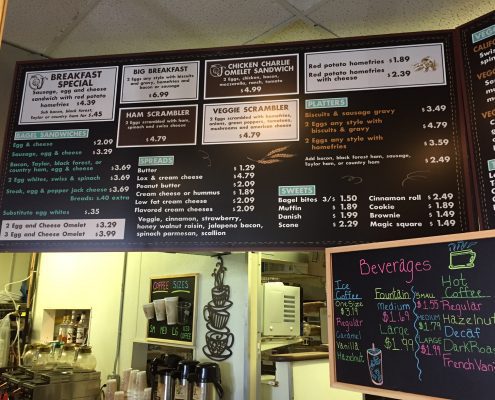 BREAKFAST SPECIAL
Sausage, egg and cheese
sandwich with red potato
homefries $4.39
Sub bacon, black forest,
Taylor or country ham for $.45
BIG BREAKFAST
2 Eggs any style with biscuits
and gravy, homefries and
bacon or sausage
$6.99
CHICKEN CHARLIE
OMELET SANDWICH
2 Eggs, chicken, bacon,
mozzarella, ranch, tomato
$4.99
Red potato homefries $1.89
Red potato homefries
with cheese $2.39
HAM SCRAMBLER
2 Eggs scrambled with ham,
spinach and swiss cheese
$4.79
VEGGIE SCRAMBLER
2 Eggs scrambled with homefries,
onions, green peppers, tomatoes,
mushrooms and american cheese
$4.79
PLATTERS
Biscuits & sausage gravy $3.49
2 Eggs any style with
biscuits & gravy $4.79
2 Eggs any style with
homefries $3.59
Add bacon, black forest ham, sausage,
Taylor ham, or country ham $2.49
BAGEL SANDWICHES
Egg & cheese $2.09
Sausage, egg & cheese $2.99
Bacon, Taylor, black forest, or
country ham, egg & cheese $3.69
2 Egg whites, swiss & spinach $3.69
Steak, egg & pepper jack cheese $3.69
Breads: $.40 extra
Substitute egg whites $.35
2 Egg and Cheese Omelet $3.29
3 Egg and Cheese Omelet $3.99
SPREADS
Butter $1.29
Lox & cream cheese $4.79
Peanut butter $2.09
Cream cheese or hummus $1.89
Low fat cream cheese $2.09
Flavored cream cheeses $2.09
Veggie, cinnamon, strawberry,
honey walnut raisin, jalapeno bacon,
spinach parmesan, scallion
SWEETS
Bagel bites 3/$ 1.50
Muffin $1.89
Danish $1.99
Scone $2.29
Cinnamon roll $2.49
Cookie $1.89
Brownie $1.49
Magic square $1.49
COFFEE SIZES
SM MED LG
Beverages
Ice
Coffee
One Size
$3.19
Regular
Caramel
Vanilla
Hazelnut
Fountain
Medium
$1.69
Large
$1.99
Hot
Coffee
SMALL
$1.55
MEDIUM
$1.79
LARGE
$1.99
Regular
Hazelnut
Decaf
Dark Roast
French Vani